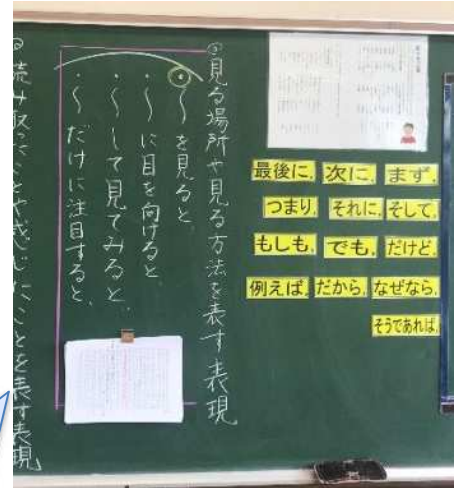 まず、
次に、
最後に、
そして、
それに、
つまり、
だけど、
でも、
もしも、
なぜなら、
だから、
例えば、
そうであれば、
②見る場所や見る方法を表す表現
・〜を見ると、
・〜に目を向けると、
・〜して見てみると、
・〜だけに注目すると、
読み取ったことや感じたことを表す表現